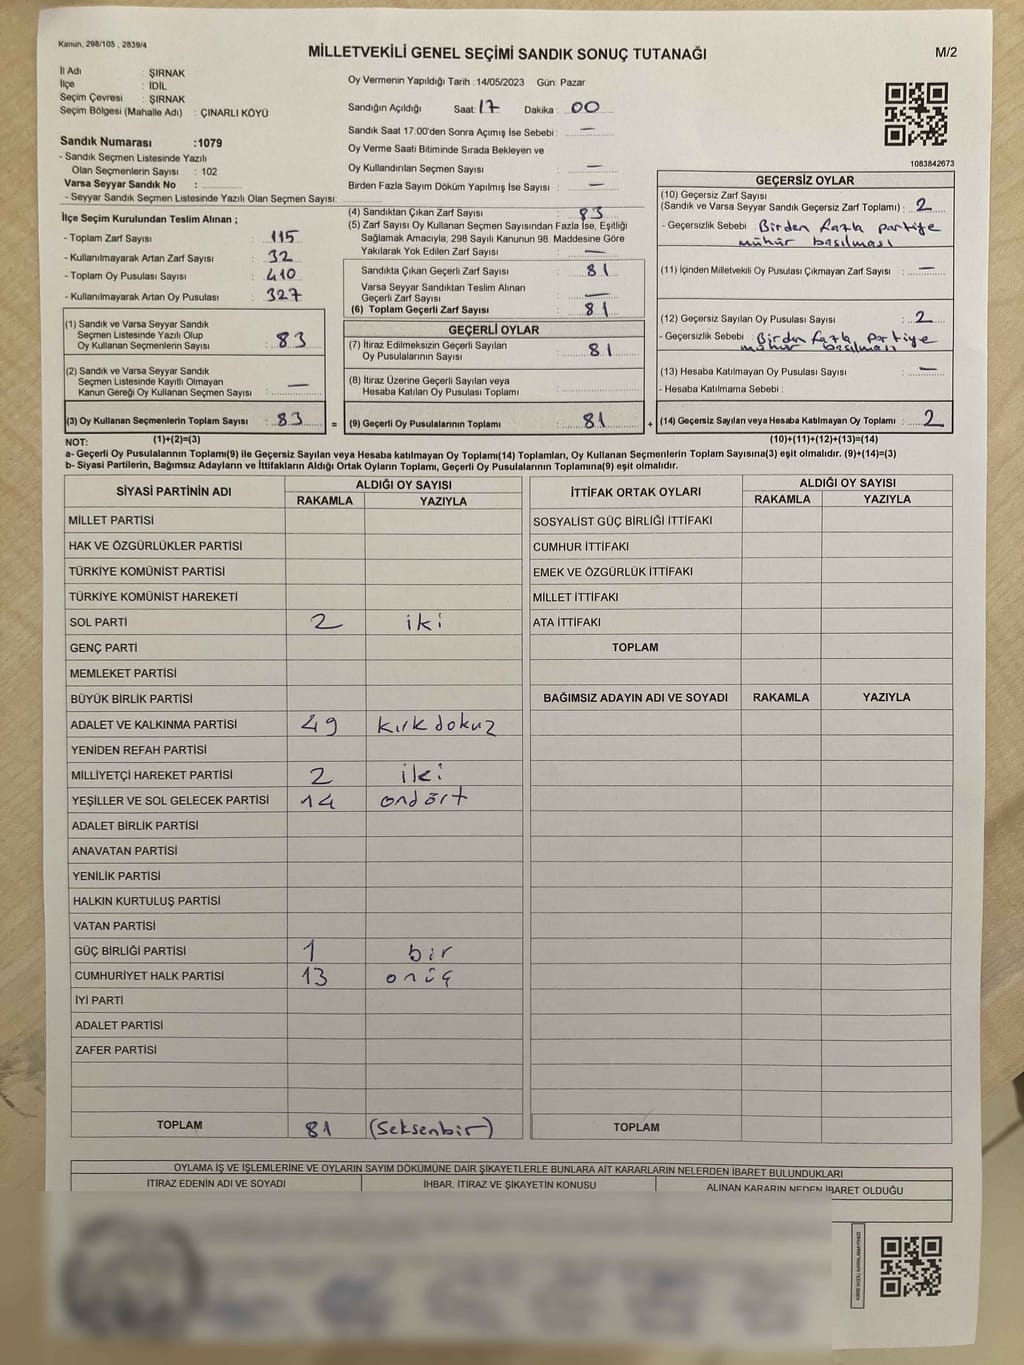 Kanun, 298/105 , 2839/4
MİLLETVEKİLİ GENEL SEÇİMİ SANDIK SONUÇ TUTANAĞI
M/2
İl Adı : ŞIRNAK
İlçe : İDİL
Seçim Çevresi : ŞIRNAK
Seçim Bölgesi (Mahalle Adı) : ÇINARLI KÖYÜ
Sandık Numarası :1079
- Sandık Seçmen Listesinde Yazılı
Olan Seçmenlerin Sayısı : 102
Varsa Seyyar Sandık No :
- Seyyar Sandık Seçmen Listesinde Yazılı Olan Seçmen Sayısı:
İlçe Seçim Kurulundan Teslim Alınan ;
- Toplam Zarf Sayısı : 115
- Kullanılmayarak Artan Zarf Sayısı : 32
- Toplam Oy Pusulası Sayısı : 410
- Kullanılmayarak Artan Oy Pusulası : 327
(1) Sandık ve Varsa Seyyar Sandık
Seçmen Listesinde Yazılı Olup
Oy Kullanan Seçmenlerin Sayısı : 83
(2) Sandık ve Varsa Seyyar Sandık
Seçmen Listesinde Kayıtlı Olmayan
Kanun Gereği Oy Kullanan Seçmen Sayısı : —
(3) Oy Kullanan Seçmenlerin Toplam Sayısı : 83 =
Oy Vermenin Yapıldığı Tarih : 14/05/2023 Gün: Pazar
Sandığın Açıldığı Saat: 17 Dakika : 00
Sandık Saat 17:00'den Sonra Açımış İse Sebebi : —
Oy Verme Saati Bitiminde Sırada Bekleyen ve
Oy Kullandırılan Seçmen Sayısı : —
Birden Fazla Sayım Döküm Yapılmış İse Sayısı : —
(4) Sandıktan Çıkan Zarf Sayısı : 83
(5) Zarf Sayısı Oy Kullanan Seçmen Sayısından Fazla İse, Eşitliği
Sağlamak Amacıyla, 298 Sayılı Kanunun 98. Maddesine Göre
Yakılarak Yok Edilen Zarf Sayısı : —
Sandıkta Çıkan Geçerli Zarf Sayısı : 81
Varsa Seyyar Sandıktan Teslim Alınan
Geçerli Zarf Sayısı : —
(6) Toplam Geçerli Zarf Sayısı : 81
GEÇERLİ OYLAR
(7) İtiraz Edilmeksizin Geçerli Sayılan
Oy Pusulalarının Sayısı : 81
(8) İtiraz Üzerine Geçerli Sayılan veya
Hesaba Katılan Oy Pusulaları Toplamı :
(9) Geçerli Oy Pusulalarının Toplamı : 81 +
1083842673
GEÇERSİZ OYLAR
(10) Geçersiz Zarf Sayısı
(Sandık ve Varsa Seyyar Sandık Geçersiz Zarf Toplamı) : 2
- Geçersizlik Sebebi : Birden fazla partiye
mühür basılması
(11) İçinden Milletvekili Oy Pusulası Çıkmayan Zarf Sayısı : —
(12) Geçersiz Sayılan Oy Pusulası Sayısı : 2
- Geçersizlik Sebebi : Birden fazla partiye
mühür basılması
(13) Hesaba Katılmayan Oy Pusulası Sayısı : —
- Hesaba Katılmama Sebebi :
(14) Geçersiz Sayılan veya Hesaba Katılmayan Oy Toplamı : 2
NOT: (1)+(2)=(3) (10)+(11)+(12)+(13)=(14)
a- Geçerli Oy Pusulalarının Toplamı(9) ile Geçersiz Sayılan veya Hesaba katılmayan Oy Toplamı(14) Toplamları, Oy Kullanan Seçmenlerin Toplam Sayısına(3) eşit olmalıdır. (9)+(14)=(3)
b- Siyasi Partilerin, Bağımsız Adayların ve İttifakların Aldığı Ortak Oyların Toplamı, Geçerli Oy Pusulalarının Toplamına(9) eşit olmalıdır.
SİYASİ PARTİNİN ADI ALDIĞI OY SAYISI
RAKAMLA YAZIYLA
MİLLET PARTİSİ
HAK VE ÖZGÜRLÜKLER PARTİSİ
TÜRKİYE KOMÜNİST PARTİSİ
TÜRKİYE KOMÜNİST HAREKETİ
SOL PARTİ 2 iki
GENÇ PARTİ
MEMLEKET PARTİSİ
BÜYÜK BİRLİK PARTİSİ
ADALET VE KALKINMA PARTİSİ 49 kırkdokuz
YENİDEN REFAH PARTİSİ
MİLLİYETÇİ HAREKET PARTİSİ 2 iki
YEŞİLLER VE SOL GELECEK PARTİSİ 14 ondört
ADALET BİRLİK PARTİSİ
ANAVATAN PARTİSİ
YENİLİK PARTİSİ
HALKIN KURTULUŞ PARTİSİ
VATAN PARTİSİ
GÜÇ BİRLİĞİ PARTİSİ 1 bir
CUMHURİYET HALK PARTİSİ 13 onüç
İYİ PARTİ
ADALET PARTİSİ
ZAFER PARTİSİ
TOPLAM 81 (Seksenbir)
İTTİFAK ORTAK OYLARI ALDIĞI OY SAYISI
RAKAMLA YAZIYLA
SOSYALİST GÜÇ BİRLİĞİ İTTİFAKI
CUMHUR İTTİFAKI
EMEK VE ÖZGÜRLÜK İTTİFAKI
MİLLET İTTİFAKI
ATA İTTİFAKI
TOPLAM
BAĞIMSIZ ADAYIN ADI VE SOYADI RAKAMLA YAZIYLA
TOPLAM
OYLAMA İŞ VE İŞLEMLERİNE VE OYLARIN SAYIM DÖKÜMÜNE DAİR ŞİKAYETLERLE BUNLARA AİT KARARLARIN NELERDEN İBARET BULUNDUKLARI
İTİRAZ EDENİN ADI VE SOYADI İHBAR, İTİRAZ VE ŞİKAYETİN KONUSU ALINAN KARARIN NEDEN İBARET OLDUĞU
KARE KODU KARALAMAYINIZ!